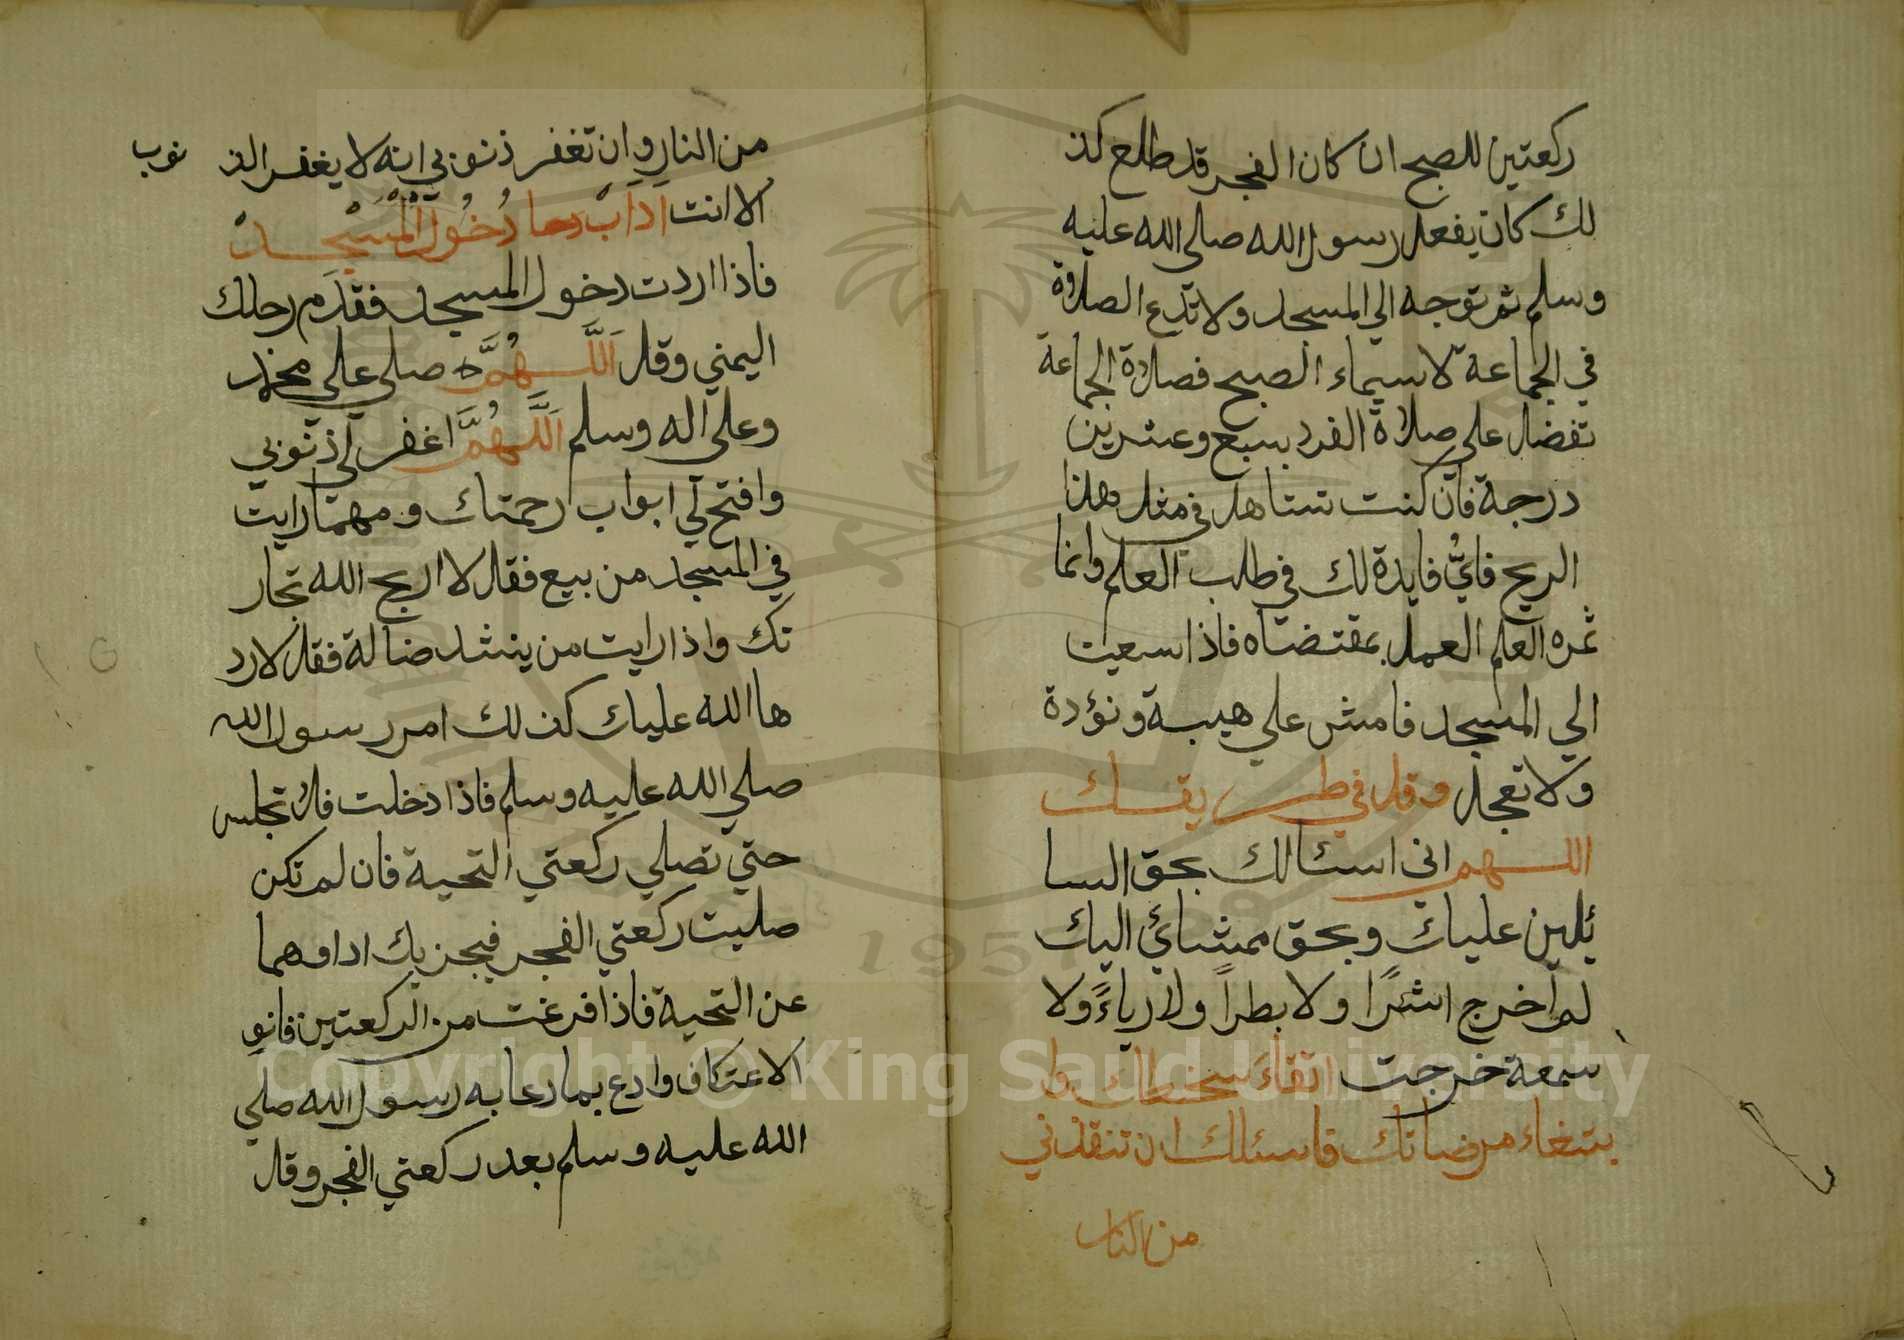 ركعتين للصبح ان كان الفجر قد طلع كذ
لك كان يفعل رسول الله صلي الله عليه
وسلم ثم توجه الي المسجد ولا تدع الصلاة
في الجماعة لا سيماء الصبح فصلاة الجماعة
تفضل علي صلاة الفرد بسبع وعشرين
درجة فان كنت تتساهل في مثل هذا
الربح فايُّ فايدة لك في طلب العلم وانما
ثمره العلم العمل بمقتضاه فاذا سعيت
الي المسجد فامش علي هيبة وتؤدة
ولا تعجل وقل في طريقك
اللهم اني اسئالك بحق السا
ئلين عليك وبحق ممشائ اليك
لم اخرج اشرًا ولا بطرًا ولا رياءً ولا
سمعة خرجت اتقاء سخطك وا
بتغاء مرضاتك فاسئلك ان تنقذني
من النار
من النار وان تغفر ذنوبي انه لا يغفر الذ نوب
الا انت اداب دخول المسجد
فاذا اردت دخول المسجد فقدم رجلك
اليمني وقل اللهم صلي علي محمد
وعلي اله وسلم اللهم اغفر لي ذنوبي
وافتح لي ابواب رحمتك ومهما رايت
في المسجد من بيع فقل لا اربح الله تجار
تك واذا رايت من ينشد ضالة فقل لا رد
ها الله عليك كذلك امر رسول الله
صلي الله عليه وسلم فاذا دخلت فلا تجلس
حتي تصلي ركعتي التحية فان لم تكن
صليت ركعتي الفجر فيجزيك اداوهما
عن التحية فاذا فرغت من الركعتين فانو
الاعتكاف وادع بما دعا به رسول الله صلي
الله عليه وسلم بعد ركعتي الفجر وقل
Copyright © King Saud University
1957